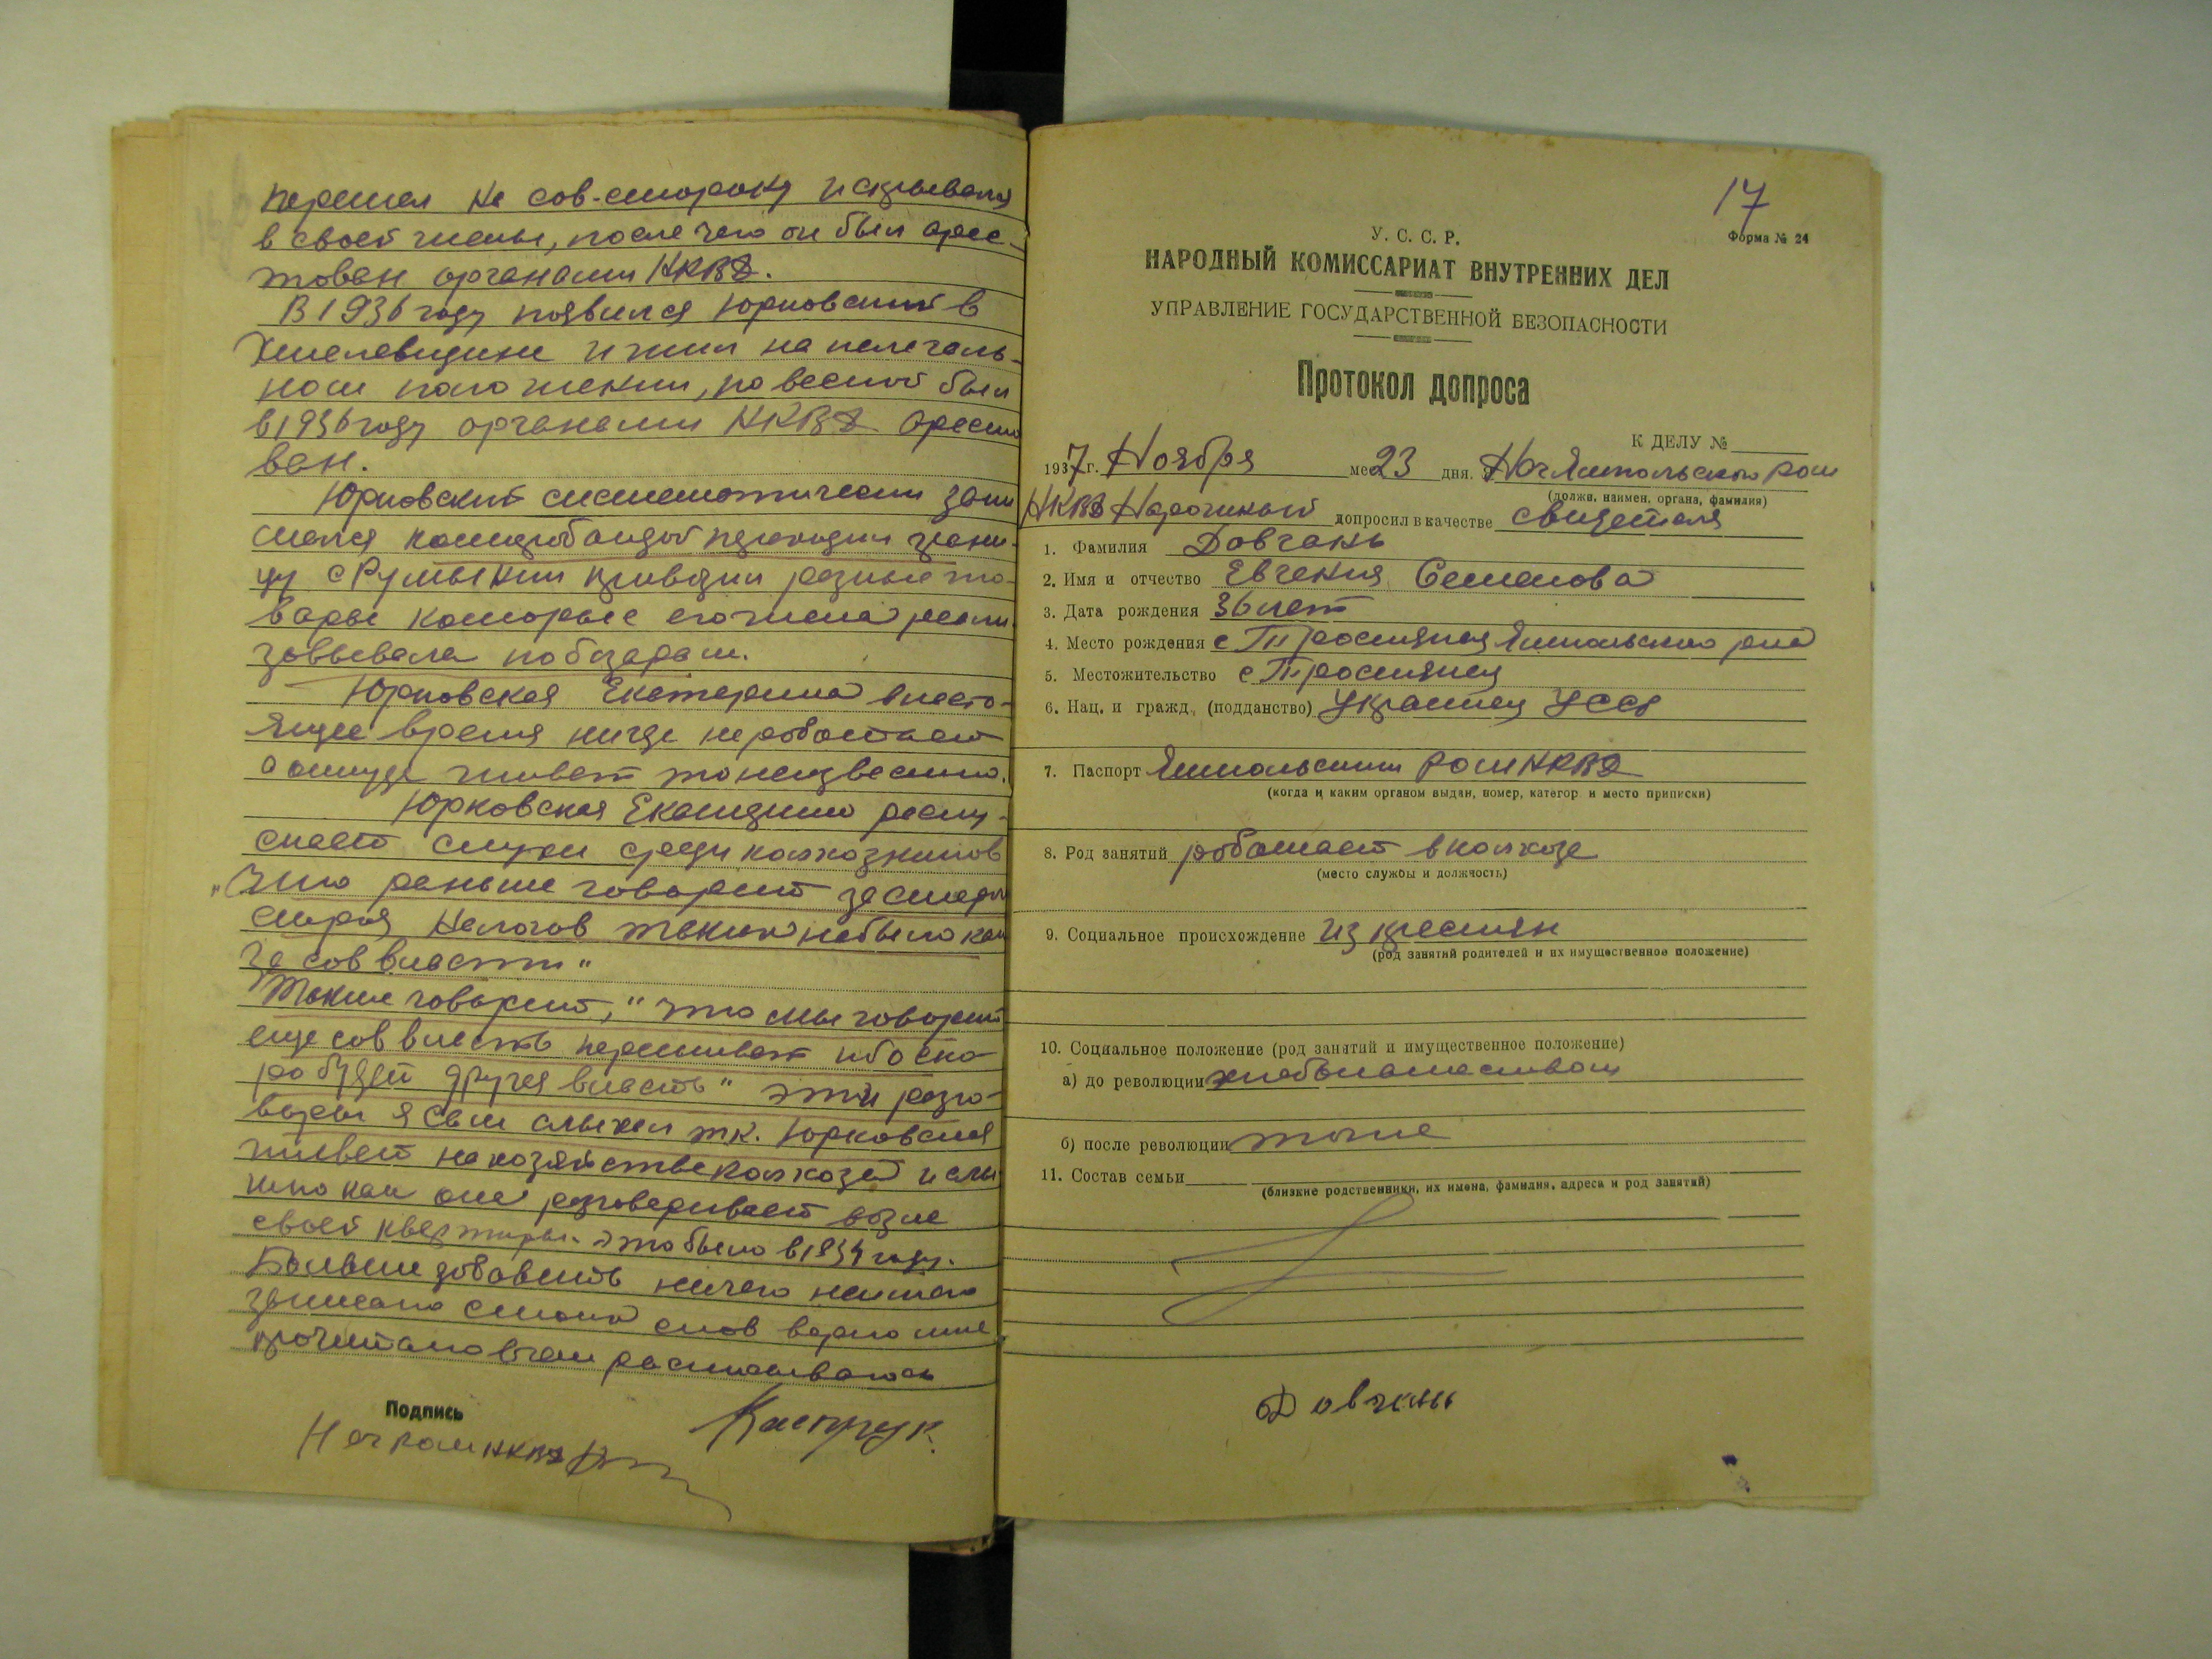 перешел на сов-сторону и скрывался
в своей жены, после чего он был арес-
тован органами НКВД.
В 1936 году появился Юрковский в
и жил на нелегаль-
ном положении, но весной был
в 1936 году органами НКВД аресто
ван.
Юрковский систематически зани
мался контрабандой переходил грани-
цу с Румынии приводил разные то-
вары которые его жена реали
зовывала по базарам.
Юрковская Екатерина в насто-
ящее время нигде не работает
а откуда живет то неизвестно.
Юрковская Екатерина распу-
скает слухи среди колхозников
"Что раньше говорит за старый
строя налогов таких не было как
за сов власти"
Также говорит, "что мы говорит
еще сов власть переживем ибо ско-
ро будет другая власть" эти разго-
воры я сам слыхал т.к. Юрковская
живет на хозяйстве колхоза и слы
шно как она разговаривает возле
своей квартиры. Это было в 1937 году.
Больше добавить ничего не имею
записано с моих слов верно мне
прочитано в чем расписываюсь
Подпись
Каспрук.
Нач ром НКВД
17
Форма № 24
У. С. С. Р.
НАРОДНЫЙ КОМИССАРИАТ ВНУТРЕННИХ ДЕЛ
УПРАВЛЕНИЕ ГОСУДАРСТВЕННОЙ БЕЗОПАСНОСТИ
Протокол допроса
К ДЕЛУ №
1937 г. Ноября мес 23 дня. Я Нач Ямпольского ром
(должн. наимен. органа, фамилия)
НКВД допросил в качестве свидетеля
1. Фамилия Довгань
2. Имя и отчество Евгения Семенова
3. Дата рождения 36 лет
4. Место рождения с Тростянец Ямпольского р-на
5. Местожительство с Тростянец
6. Нац. и гражд. (подданство) Украинец УССР
7. Паспорт Ямпольским ром НКВД
(когда и каким органом выдан, номер, категор. и место приписки)
8. Род занятий работает в колхозе
(место службы и должность)
9. Социальное происхождение из крестян
(род занятий родителей и их имущественное положение)
10. Социальное положение (род занятий и имущественное положение)
а) до революции хлебопашеством
б) после революции тоже
11. Состав семьи
(близкие родственники, их имена, фамилия, адреса и род занятий)
Довгань